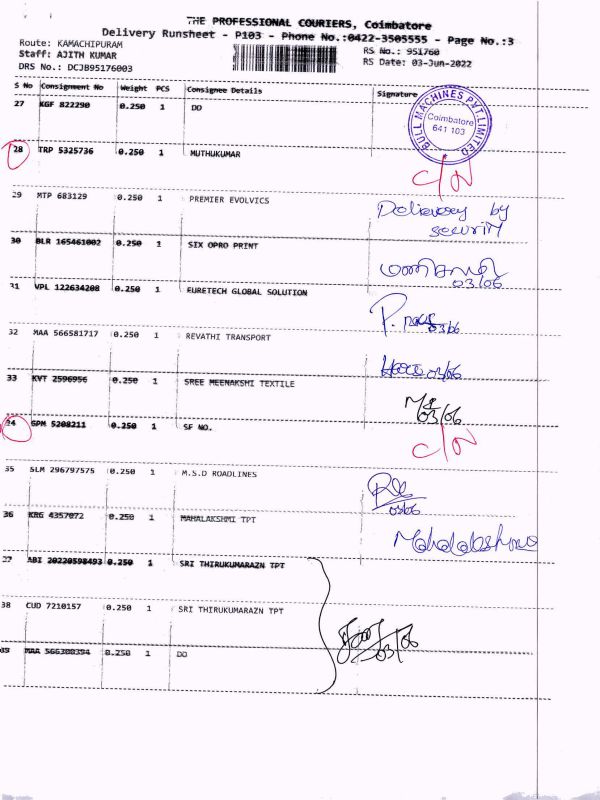 THE PROFESSIONAL COURIERS, Coimbatore
Delivery Runsheet - P103 - Phone No.:0422-3505555 - Page No.:3
Route: KAMACHIPURAM RS No.: 951760
Staff: AJITH KUMAR RS Date: 03-Jun-2022
DRS No.: DCJB95176003
S No Consignment No Weight PCS Consignee Details Signature
27 KGF 822290 0.250 1 DO
BULL MACHINES PVT.LIMITED
Coimbatore
641 103
28 TRP 5325736 0.250 1 MUTHUKUMAR
C/N
29 MTP 683129 0.250 1 PREMIER EVOLVICS
Delievery by
security
30 BLR 165461002 0.250 1 SIX OPRO PRINT
03/06
31 VPL 122634208 0.250 1 EURETECH GLOBAL SOLUTION
P. 03/06
32 MAA 566581717 0.250 1 REVATHI TRANSPORT
03/06
33 KVT 2596956 0.250 1 SREE MEENAKSHI TEXTILE
03/06
34 GPM 5208211 0.250 1 SF NO.
C/N
35 SLM 296797575 0.250 1 M.S.D ROADLINES
03/06
36 KRG 4357072 0.250 1 MAHALAKSHMI TPT
37 ABI 20220598493 0.250 1 SRI THIRUKUMARAZN TPT
38 CUD 7210157 0.250 1 SRI THIRUKUMARAZN TPT
03/06
39 MAA 566300394 0.250 1 DO